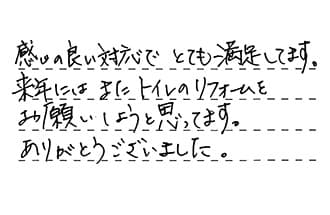 感じの良い対応で とても満足してます。
来年には またトイレのリフォームを
お願いしようと思ってます。
ありがとうございました。